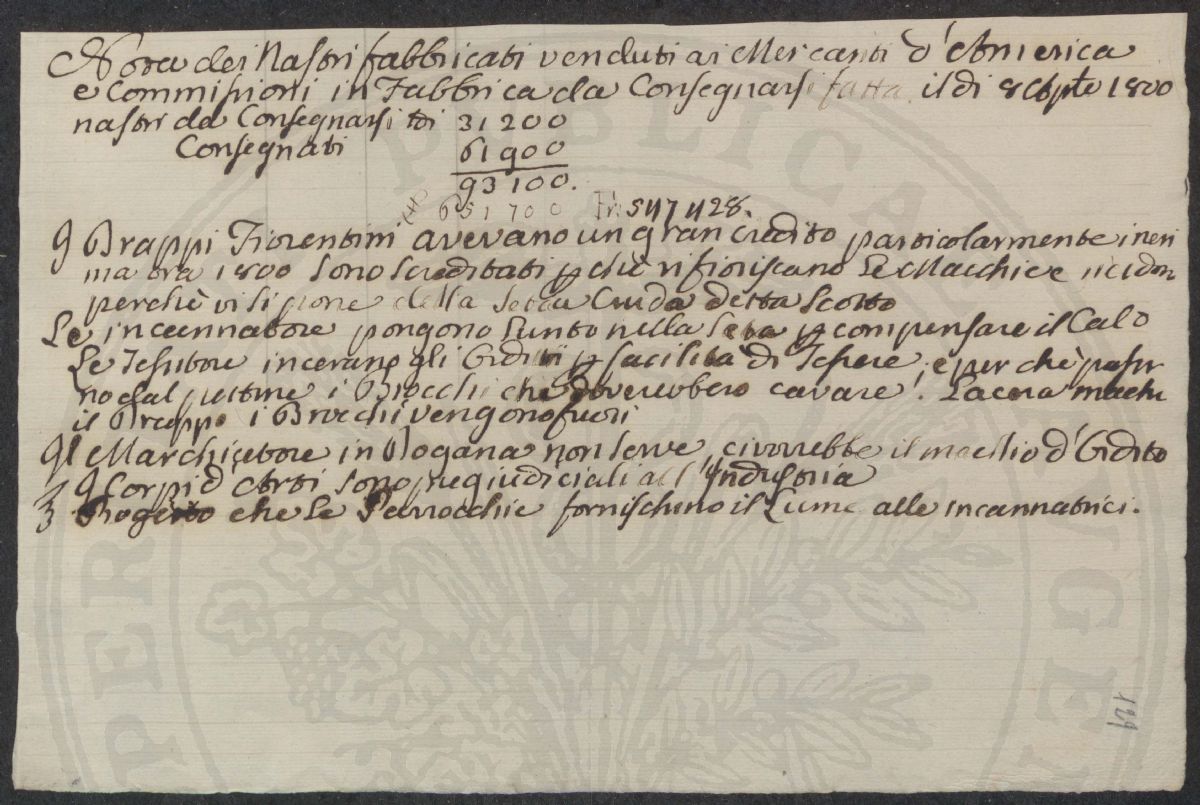 Nota dei Nastri fabbricati venduti ai Mercanti d'America
e Commissioni in Fabbrica da Consegnarsi fatta il dì 8 1800
nastri da Consegnarsi 31200
Consegnati 61900
93100.
651700 5117428.
Drappi Fiorentini avevano un gran credito particolarmente in
1800 sono screditati p chè rifioriscano le Macchie
perchè vi si pone della Seta Cruda detta Scotto
Le incannatore pongono L'unto nella Seta p compensare il Calo
Le Tessitore incerano gli Orditi p facilità di Tessere, e perchè
no dal pettine i Brocchi che doverebbero cavare! La cera
il Drappo i Brochi vengono fuori
Marchiatore in Dogana non serve, ci vorrebbe il d'Ordito
Corpi d'Arti sono pregiudiciali all'Industria
3 che Le Parrocchie fornischino il Lume alle incannatrici.
129
PUBLICAE
PER